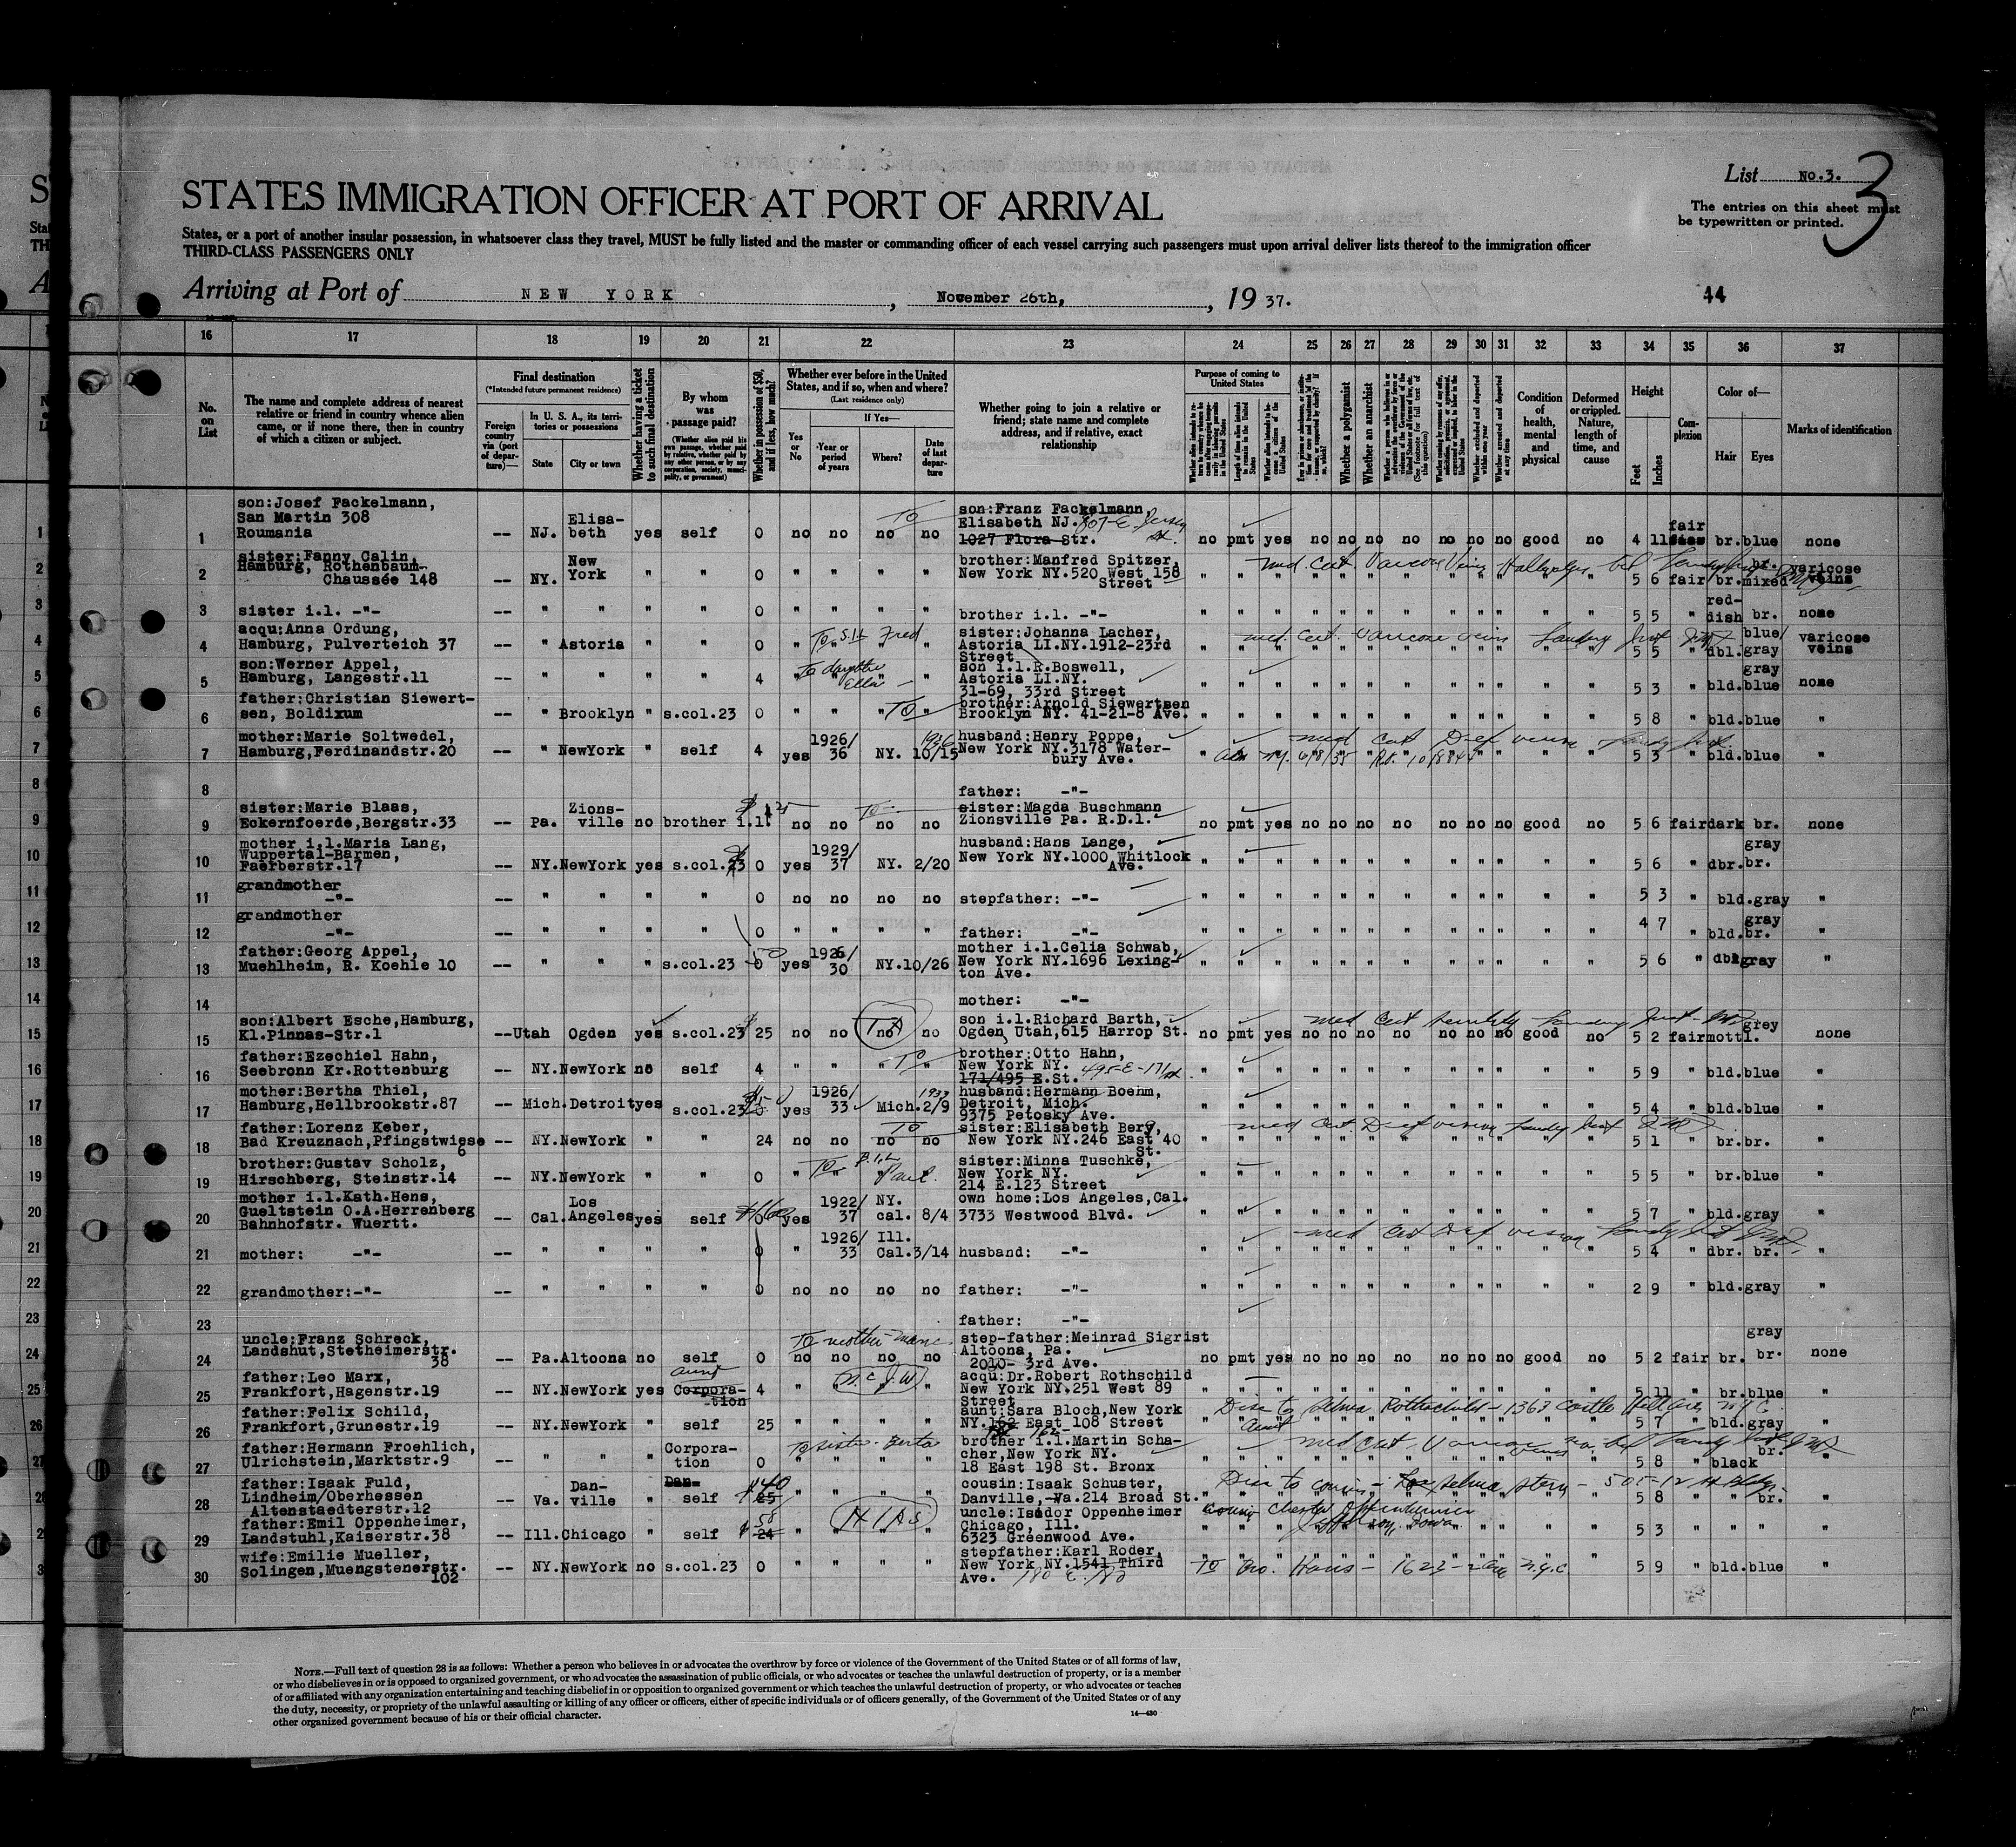 List No.3.
3
The entries on this sheet must
be typewritten or printed.
STATES IMMIGRATION OFFICER AT PORT OF ARRIVAL
States, or a port of another insular possession, in whatsoever class they travel, MUST be fully listed and the master or commanding officer of each vessel carrying such passengers must upon arrival deliver lists thereof to the immigration officer
THIRD-CLASS PASSENGERS ONLY
Arriving at Port of NEW YORK, November 26th, , 19 37.
44
16 17 18 19 20 21 22 23 24 25 26 27 28 29 30 31 32 33 34 35 36 37
No. on List
The name and complete address of nearest relative or friend in country whence alien came, or if none there, then in country of which a citizen or subject.
Final destination
(*Intended future permanent residence)
Foreign country via (port of departure)—
In U. S. A., its territories or possessions
State
City or town
Whether having a ticket to such final destination
By whom was passage paid?
Whether in possession of $50, and if less, how much?
Whether ever before in the United States, and if so, when and where?
(Last residence only)
Yes or No
If Yes—
Year or period of years
Where?
Date of last departure
Whether going to join a relative or friend; state name and complete address, and if relative, exact relationship
Purpose of coming to United States
Whether a polygamist
Whether an anarchist
Condition of health, mental and physical
Deformed or crippled. Nature, length of time, and cause
Height
Feet
Inches
Complexion
Color of—
Hair
Eyes
Marks of identification
1 son:Josef Fackelmann, San Martin 308 Roumania -- NJ. Elisa-beth yes self 0 no no no no son:Franz Fackelmann, Elisabeth NJ. 807-E. Jersey St. 1027 Flora Str. no pmt yes no no no no no no no good no 4 11 fair br. blue none
2 sister:Fanny Calin, Hamburg, Rothenbaum-Chaussée 148 -- NY. New York " " 0 " " " " brother:Manfred Spitzer, New York NY.520 West 158 Street 5 6 fair br. br. mixed varicose veins
3 sister i.l. -"- -- " " " " 0 " " " " brother i.l. -"- 5 5 " red-dish br. none
4 acqu:Anna Ordung, Hamburg, Pulverteich 37 -- " Astoria " " 0 " " " " sister:Johanna Lacher, Astoria LI.NY.1912-23rd Street 5 5 " dbl. blue/gray varicose veins
5 son:Werner Appel, Hamburg, Langestr.11 -- " " " " 4 To daughter Ella son i.l.R.Boswell, Astoria LI.NY. 31-69, 33rd Street 5 3 " bld. gray blue none
6 father:Christian Siewert-sen, Boldixum -- " Brooklyn " s.col.23 0 " " " To " brother:Arnold Siewertsen Brooklyn NY. 41-21-8 Ave. 5 8 " bld.blue "
7 mother:Marie Soltwedel, Hamburg,Ferdinandstr.20 -- " NewYork " self 4 yes 1926/36 NY. 1936 10/15 husband:Henry Poppe, New York NY.3178 Water-bury Ave. 5 3 " bld.blue "
8 father: -"-
9 sister:Marie Blaas, Eckernfoerde,Bergstr.33 -- Pa. Zions-ville no brother i.l. no no no no sister:Magda Buschmann Zionsville Pa. R.D.1. no pmt yes no no no no no no no good no 5 6 fair dark br. none
10 mother i.l.Maria Lang, Wuppertal-Barmen, Faerberstr.17 -- NY.NewYork yes s.col.23 0 yes 1929/37 NY. 2/20 husband:Hans Lange, New York NY.1000 Whitlock Ave. 5 6 " dbr. gray br.
11 grandmother -"- -- " " " " 0 no no no no stepfather: -"- 5 3 " bld.gray "
12 grandmother -"- -- " " " " 0 " " " " father: -"- 4 7 " bld. gray br. "
13 father:Georg Appel, Muehlheim, R. Koehle 10 -- " " " s.col.23 50 yes 1926/30 NY.10/26 mother i.l.Celia Schwab, New York NY.1696 Lexing-ton Ave. 5 6 " gray "
14 mother: -"-
15 son:Albert Esche,Hamburg, Kl.Pinnas-Str.1 -- Utah Ogden yes s.col.23 25 no no no no son i.l.Richard Barth, Ogden Utah,615 Harrop St. no pmt yes no no no no no no no good no 5 2 fair mottl. grey none
16 father:Ezechiel Hahn, Seebronn Kr.Rottenburg -- NY.NewYork no self 4 " " " To " brother:Otto Hahn, New York NY. 171/495 E.St. 495-E-171st. 5 9 " bld.blue "
17 mother:Bertha Thiel, Hamburg,Hellbrookstr.87 -- Mich.Detroit yes s.col.23 yes 1926/33 Mich. 1933 2/9 husband:Hermann Boehm, Detroit, Mich. 9375 Petosky Ave. 5 4 " bld.blue "
18 father:Lorenz Keber, Bad Kreuznach,Pfingstwiese 6 -- NY.NewYork " " 24 no no no no sister:Elisabeth Berg, New York NY.246 East 40 St. 5 1 " br.br. "
19 brother:Gustav Scholz, Hirschberg, Steinstr.14 -- NY.NewYork " " 0 To B.i.L Paul. sister:Minna Tuschke, New York NY. 214 E.123 Street 5 5 " br.blue "
20 mother i.l.Kath.Hens, Gueltstein O.A.Herrenberg Bahnhofstr. Wuertt. -- Cal. Los Angeles yes self 0 yes 1922/37 NY. cal. 8/4 own home:Los Angeles,Cal. 3733 Westwood Blvd. 5 7 " bld.gray "
21 mother: -"- -- " " " " 0 " 1926/33 Ill. Cal.3/14 husband: -"- 5 4 " dbr. br. "
22 grandmother:-"- -- " " " " 0 no no no no father: -"- 2 9 " bld.gray "
23 father: -"-
24 uncle:Franz Schreck, Landshut,Stetheimerstr. 38 -- Pa.Altoona no self 0 no no no no step-father:Meinrad Sigrist Altoona, Pa. 2010- 3rd Ave. no pmt yes no no no no no no no good no 5 2 fair br. gray br. none
25 father:Leo Marx, Frankfort,Hagenstr.19 -- NY.NewYork yes aunt Corpora-tion 4 " N.C.J.W. " acqu:Dr.Robert Rothschild New York NY.251 West 89 Street 5 11 " br.blue "
26 father:Felix Schild, Frankfort,Grunestr.19 -- NY.NewYork " self 25 " " " " aunt:Sara Bloch,New York NY.162 East 108 Street Disc to Selma Rothschild - 1363 Castle Hill Ave, N.Y.C. Aunt 5 7 " bld.gray "
27 father:Hermann Froehlich, Ulrichstein,Marktstr.9 -- " " " Corpora-tion 0 To sister - Berta brother i.l.Martin Scha-cher,New York NY. 18 East 198 St. Bronx 5 8 " black br. "
28 father:Isaak Fuld, Lindheim/Oberhessen Altenstaedterstr.12 -- Va. Dan-ville " Dan- self $40 25 " " " " cousin:Isaak Schuster, Danville, Va.214 Broad St. 5 8 " " br. "
29 father:Emil Oppenheimer, Landstuhl,Kaiserstr.38 -- Ill.Chicago " self 24 58 " HIAS " uncle:Isidor Oppenheimer Chicago, Ill. 6323 Greenwood Ave. cousin Chester Oppenheimer Iowa 5 3 " " " "
30 wife:Emilie Mueller, Solingen,Muengstenerstr. 102 -- NY.NewYork no s.col.23 0 " " " " stepfather:Karl Roder, New York NY.1541 Third Ave. To Bro. Hans - 1623 - 2 Ave N.Y.C. 5 9 " bld.blue "
NOTE.—Full text of question 28 is as follows: Whether a person who believes in or advocates the overthrow by force or violence of the Government of the United States or of all forms of law,
or who disbelieves in or is opposed to organized government, or who advocates the assassination of public officials, or who advocates or teaches the unlawful destruction of property, or is a member
of or affiliated with any organization entertaining and teaching disbelief in or opposition to organized government or which teaches the unlawful destruction of property, or who advocates or teaches
the duty, necessity, or propriety of the unlawful assaulting or killing of any officer or officers, either of specific individuals or of officers generally, of the Government of the United States or of any
other organized government because of his or their official character.
14—430